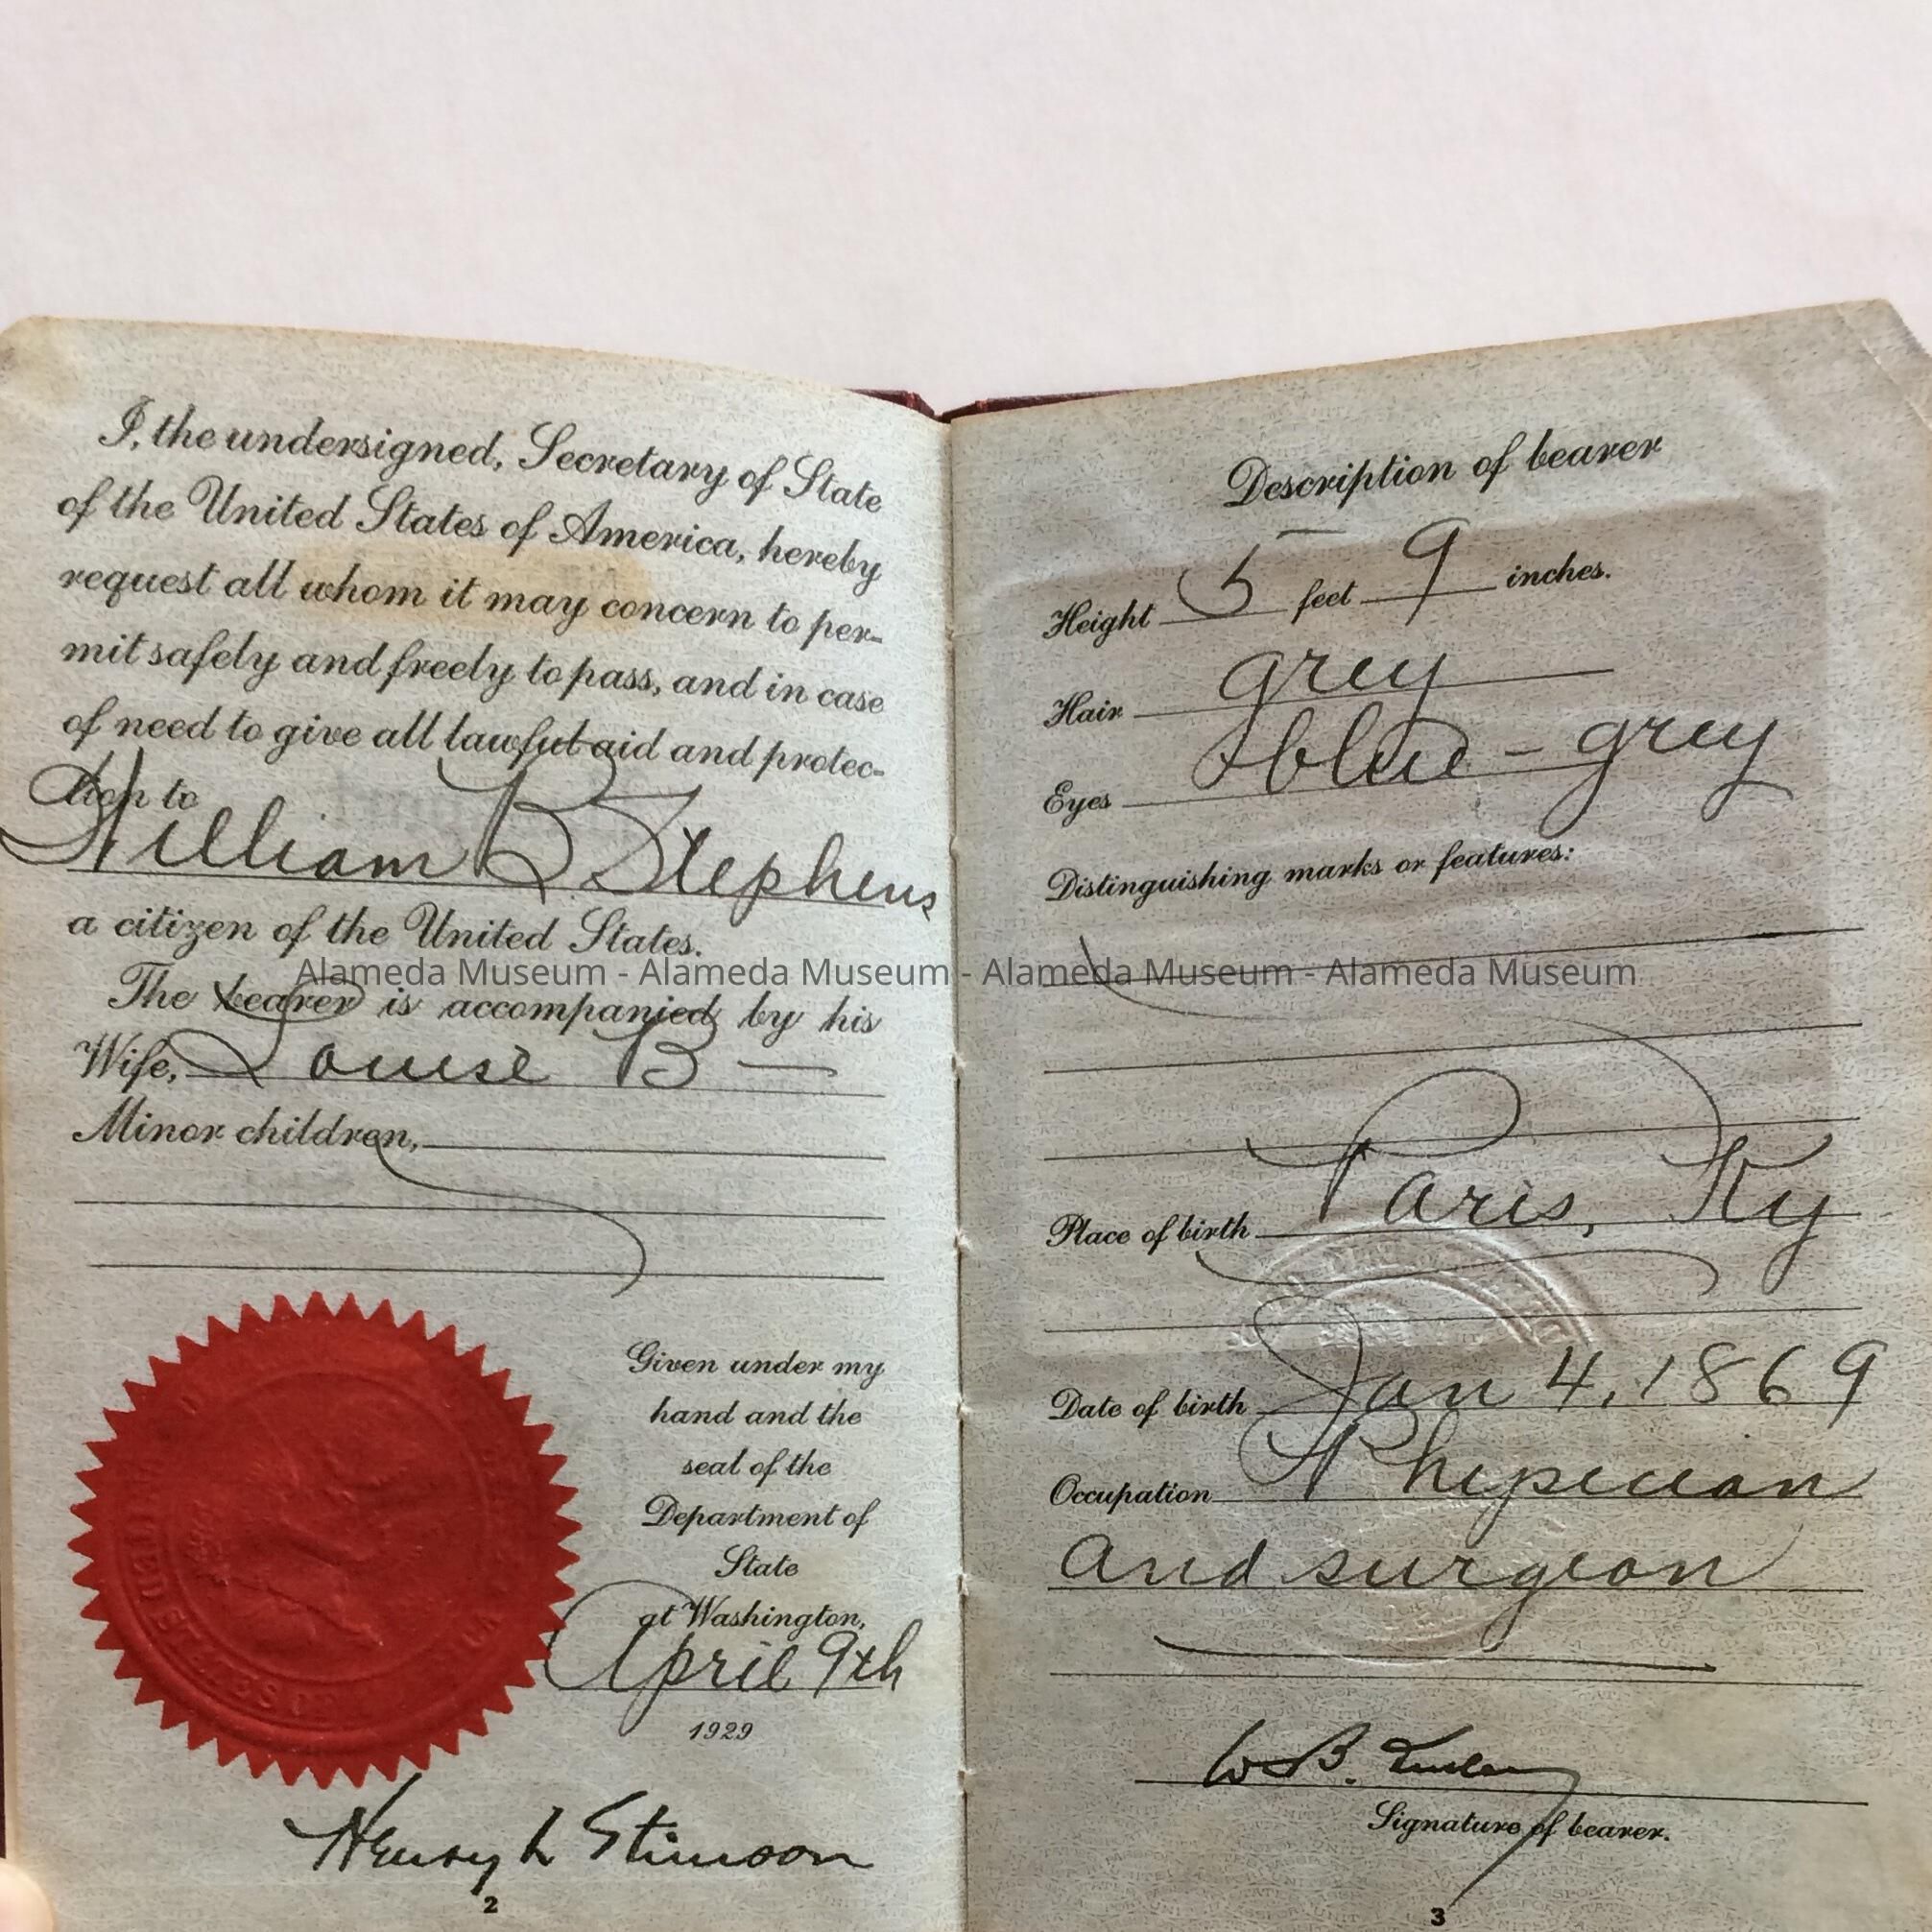 I, the undersigned, Secretary of State
of the United States of America, hereby
request all whom it may concern to per-
mit safely and freely to pass, and in case
of need to give all lawful aid and protec-
tion to
William B Stephens
a citizen of the United States.
The bearer is accompanied by his
Wife, Louise B —
Minor children,
Given under my
hand and the
seal of the
Department of
State
at Washington,
April 9th
1929
Henry L Stimson
2
Description of bearer
Height 5 feet 9 inches.
Hair grey
Eyes blue - grey
Distinguishing marks or features:
Place of birth Paris, Ky
Date of birth Jan 4, 1869
Occupation Physician
and surgeon
W. B.
Signature of bearer.
3
Alameda Museum - Alameda Museum - Alameda Museum - Alameda Museum